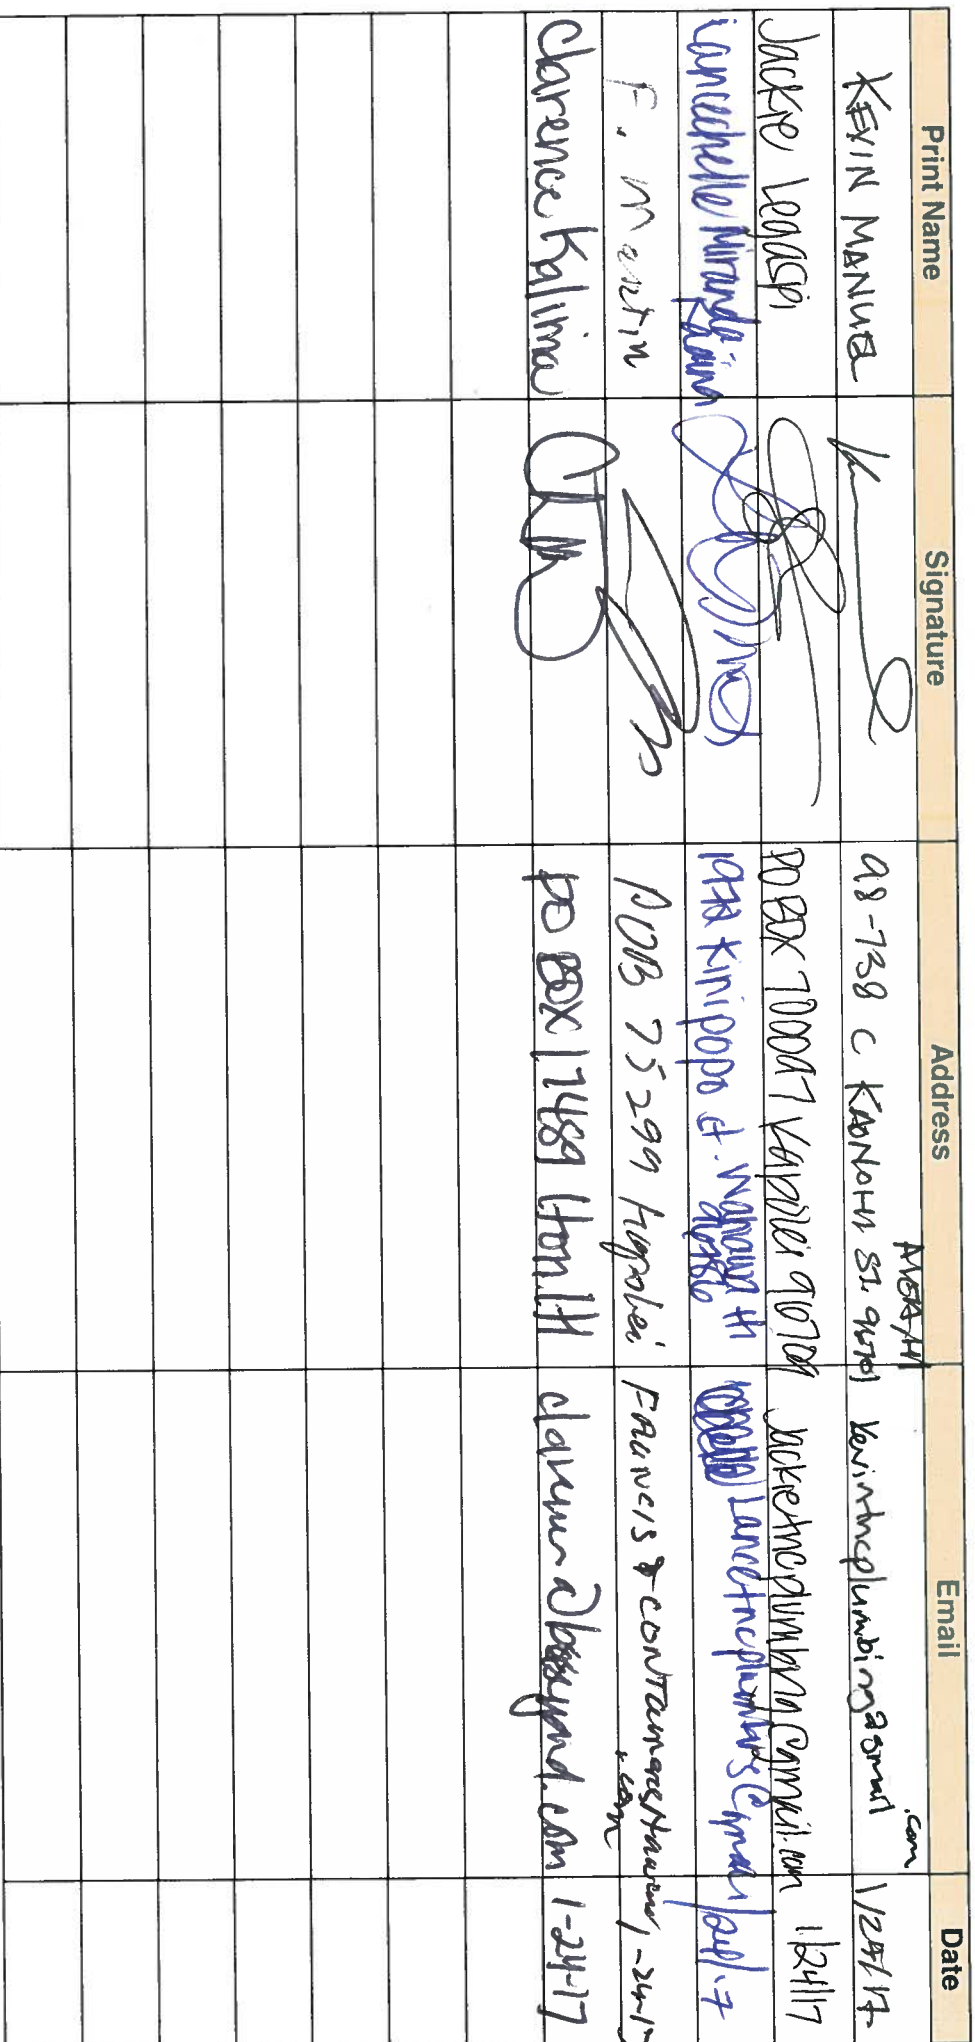 Print Name Signature Address Email Date
KEVIN MANUEL 98-738 C KAONOHI ST. 96701 AIEA, HI kevintncplumbing@gmail.com 1/24/17
Jackie Legaspi PO BOX 700097 Kapolei 96709 Jackietncplumbing@gmail.com 1/24/17
Lancechelle Miranda- Kinipopo st. Wahiawa HI 96786 Lancetncplumbing@gmail 1/24/17
F. Martin POB 75299 Kapolei .com 1-24-17
Clarence Kalima PO BOX 17489 Hon. HI 1-24-17